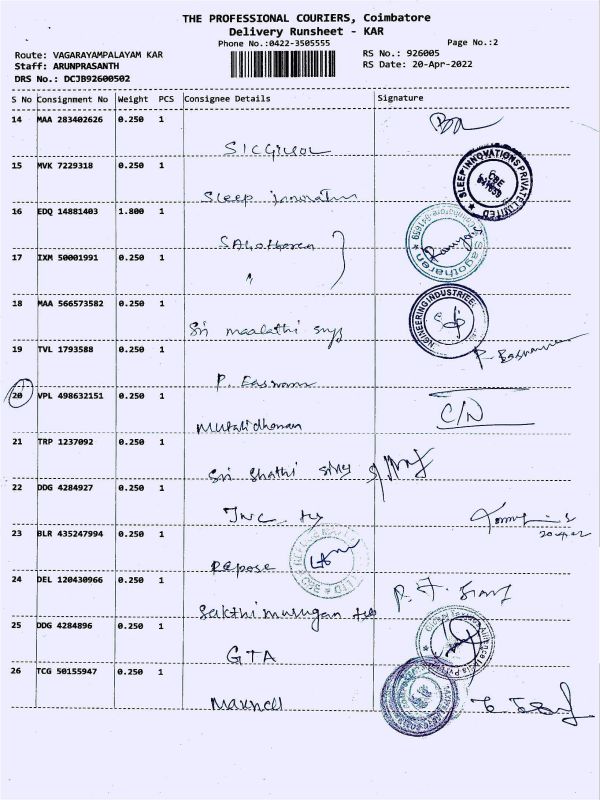 THE PROFESSIONAL COURIERS, Coimbatore
Delivery Runsheet - KAR
Phone No.:0422-3505555
Page No.:2
Route: VAGARAYAMPALAYAM KAR
RS No.: 926005
Staff: ARUNPRASANTH
RS Date: 20-Apr-2022
DRS No.: DCJB92600502
S No Consignment No Weight PCS Consignee Details Signature
14 MAA 283402626 0.250 1
15 MVK 7229318 0.250 1
SLEEP INNOVATIONS PRIVATE LIMITED
Sleep
16 EDQ 14881403 1.800 1
Sagotharan
17 IXM 50001991 0.250 1
"
18 MAA 566573582 0.250 1
ENGINEERING INDUSTRIES
Sri maalathi
19 TVL 1793588 0.250 1
P. Easwaran
20 VPL 498632151 0.250 1
C/N
21 TRP 1237092 0.250 1
Sri Shathi
22 DDG 4284927 0.250 1
23 BLR 435247994 0.250 1
Repose
24 DEL 120430966 0.250 1
Sakthimurugan
25 DDG 4284896 0.250 1
GTA
26 TCG 50155947 0.250 1